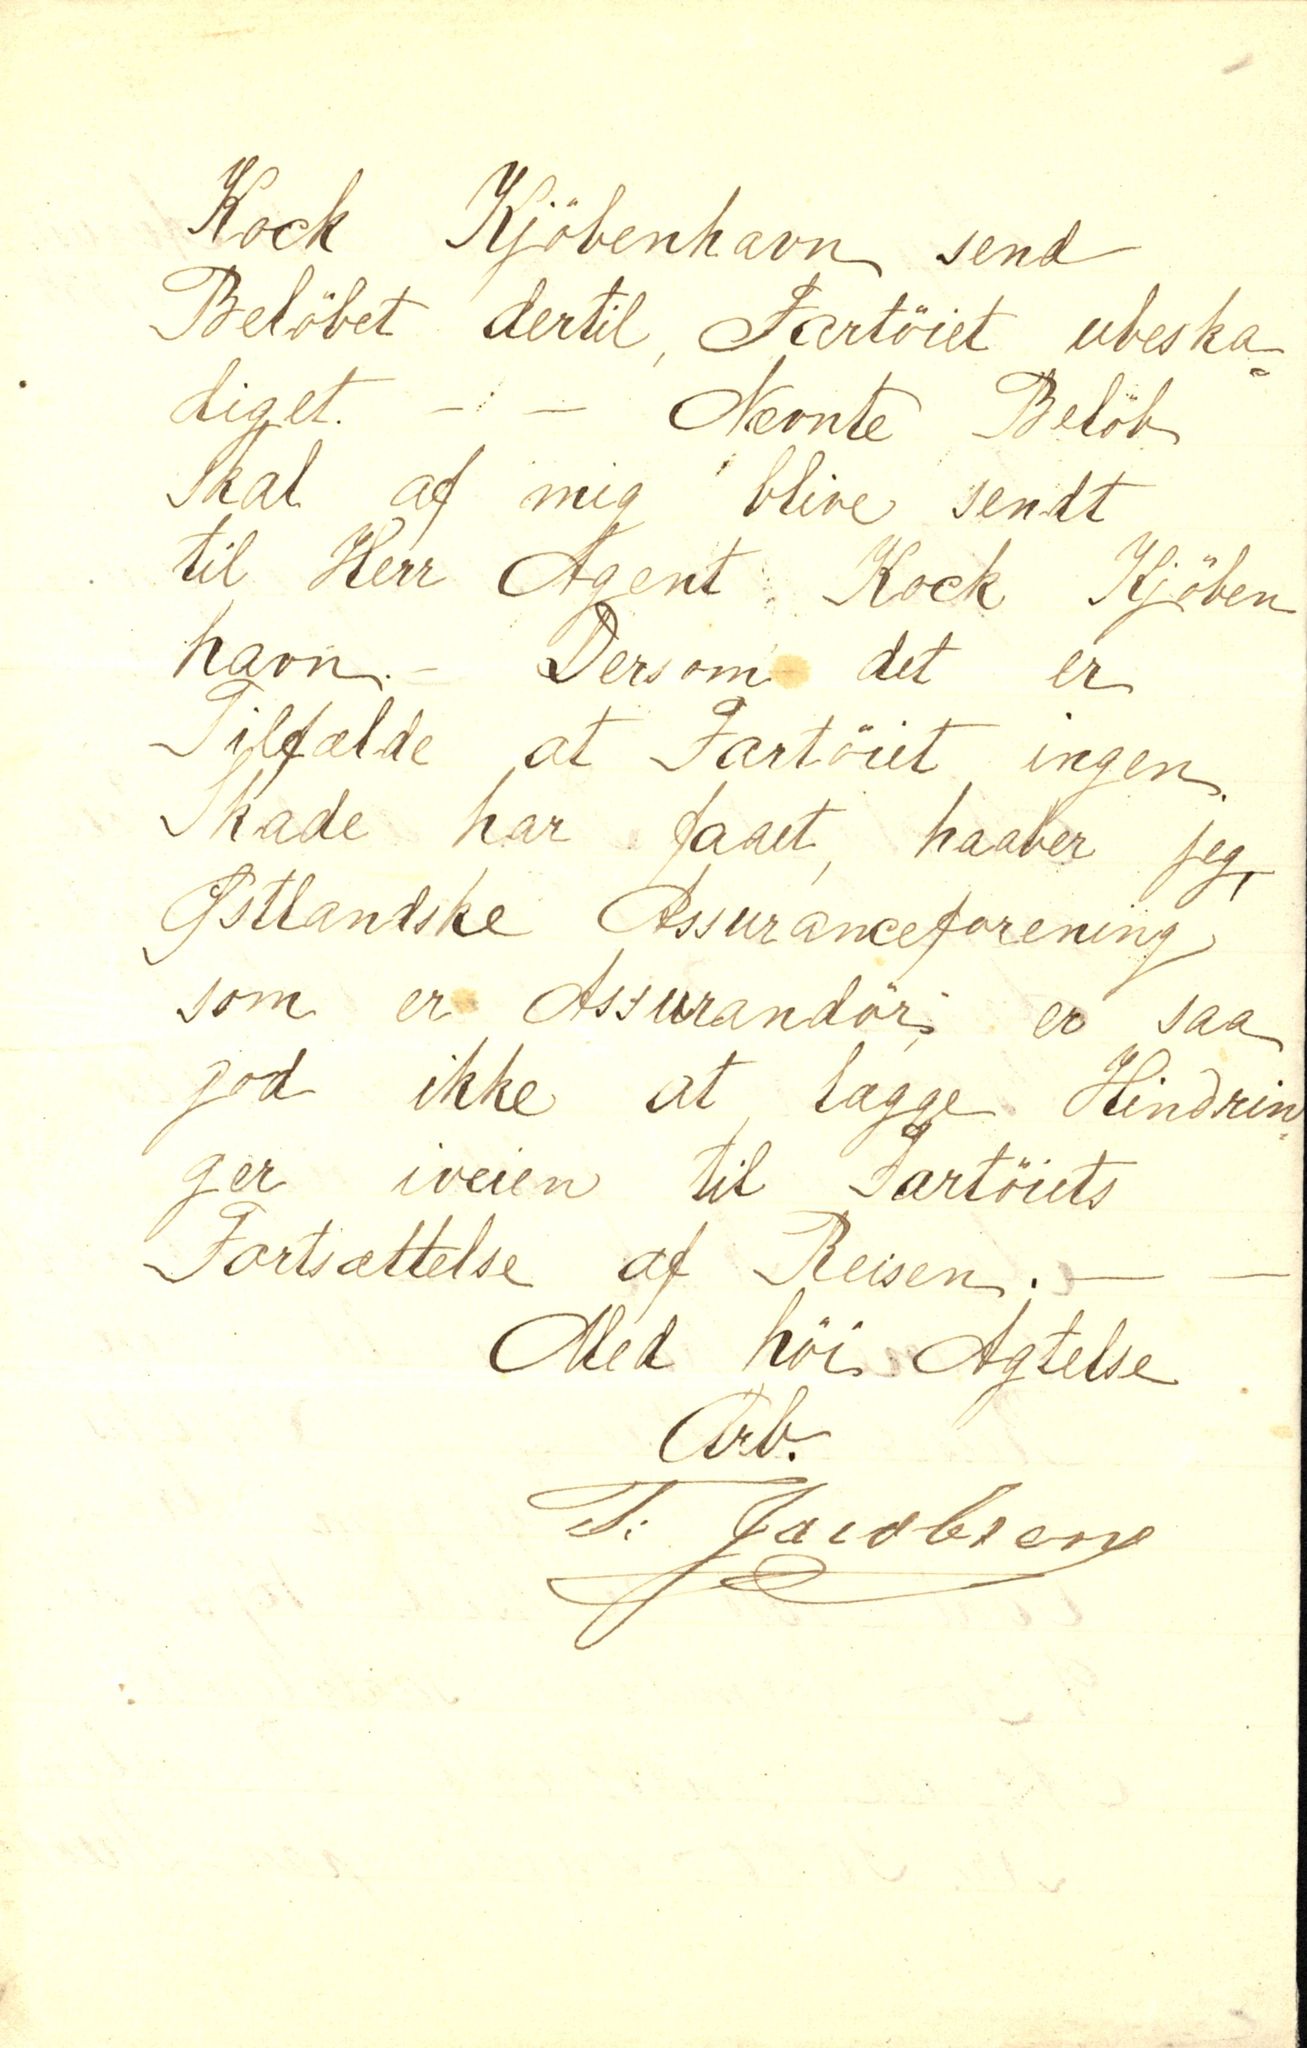 Kock Kjöbenhavn send
Belöbet dertil, Fartöiet ubeska-
diget. - - Nævnte Belöb
skal af mig blive sendt
til Herr Agent Kock Kjöben
havn. - Dersom det er
Tilfælde at Fartöiet ingen
Skade har faaet, haaber jeg,
Østlandske Assuranceforening
som er Assurandör, er saa
god ikke at lægge Hindrin-
ger iveien til Fartöiets
Fortsættelse af Reisen. - -
Med höi Agtelse
Arb.
T. Jacobsen